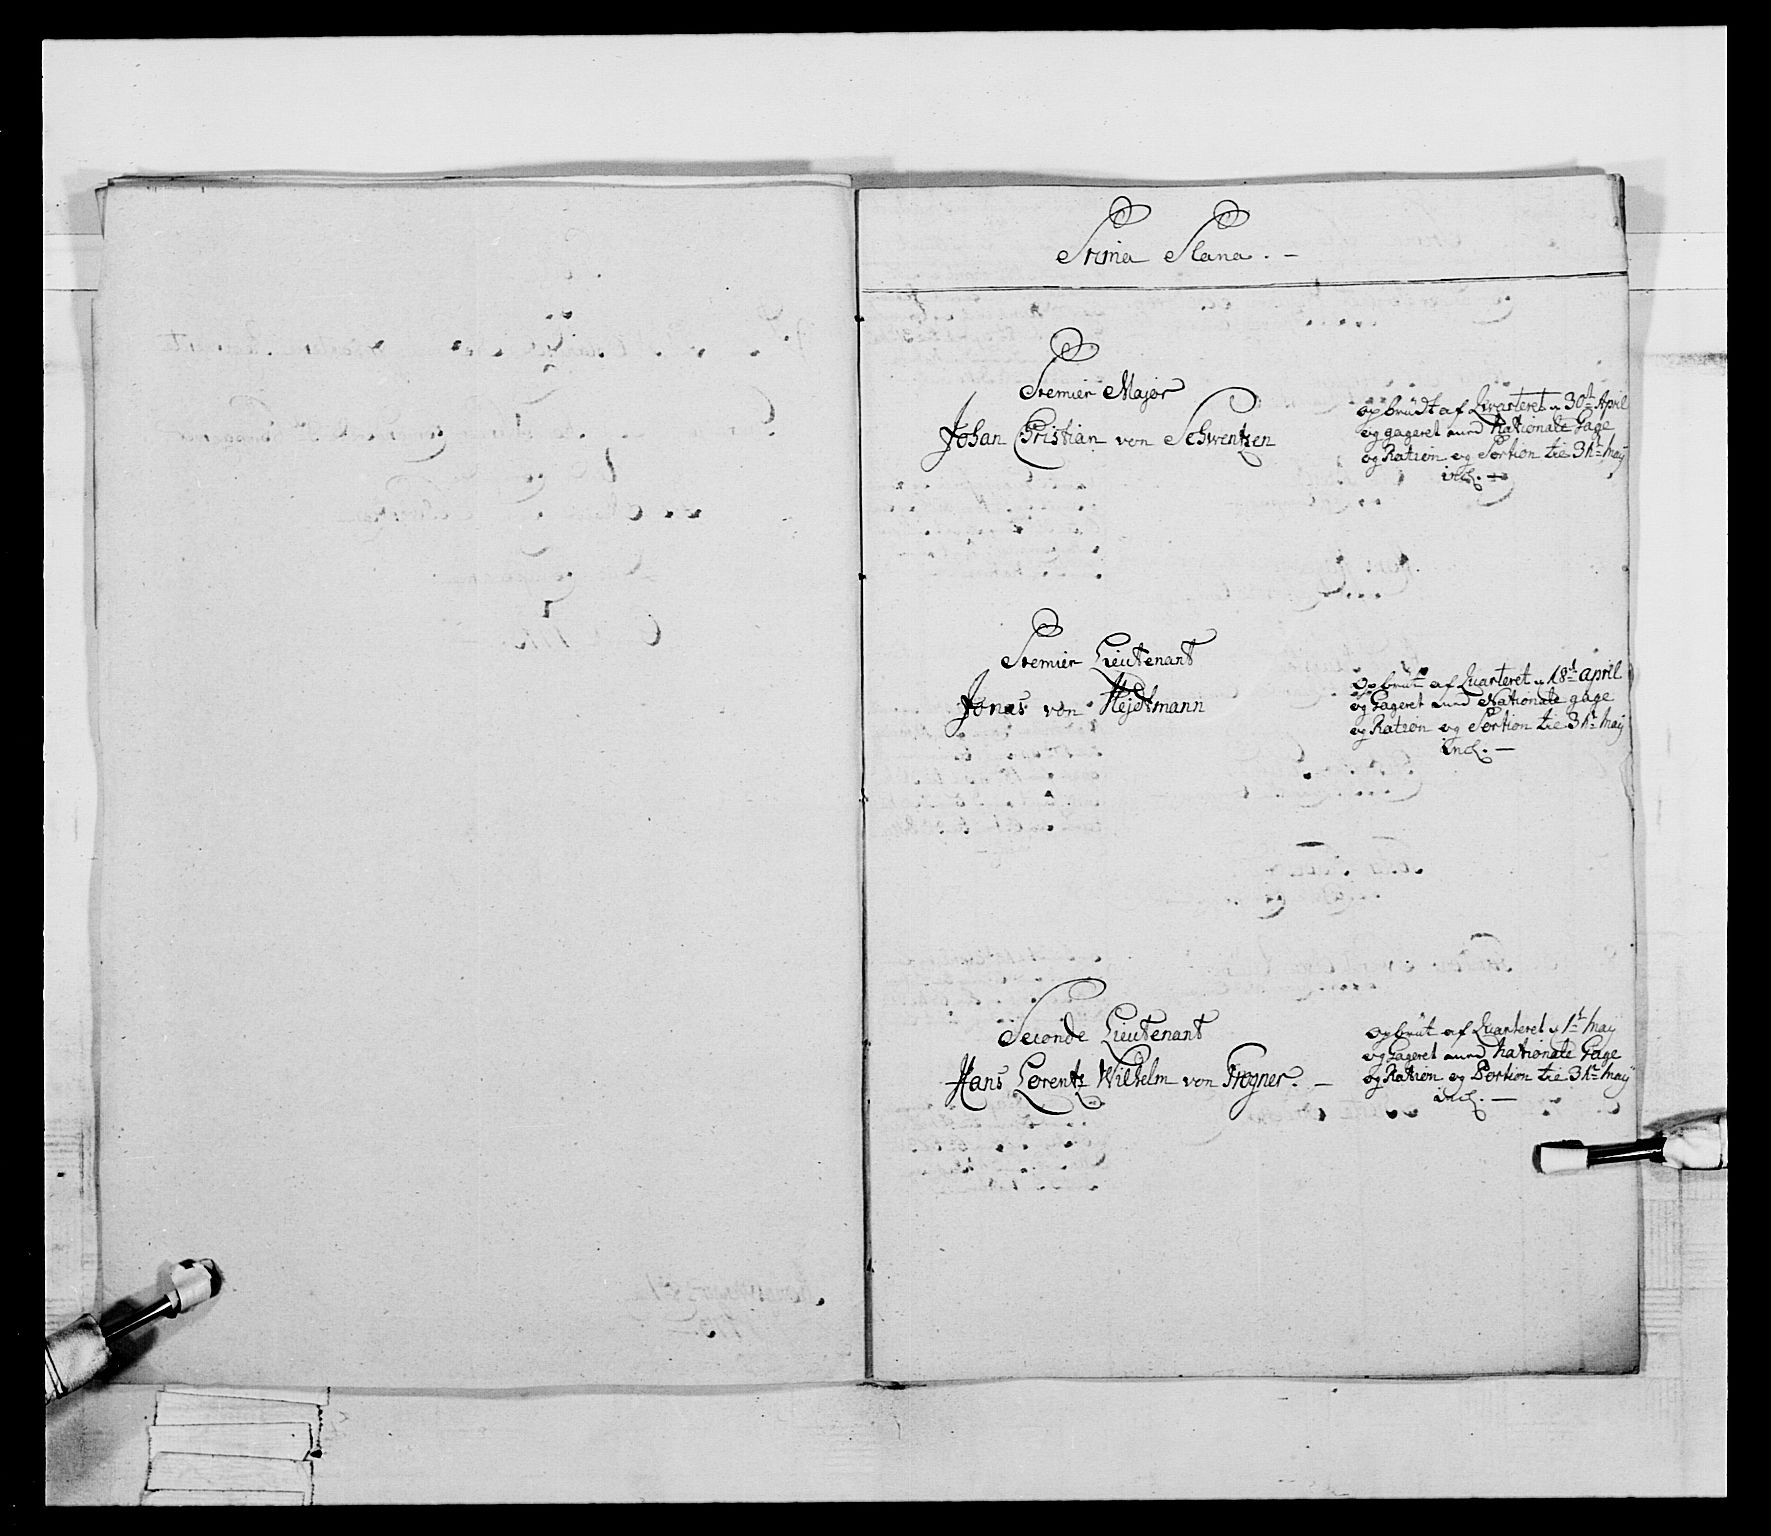 Prima Plana. -
Premier Major
Johan Christian von Schwentzen
opbrudt af Qvarteret d 30t April
og gageret med Nationale Gage
og Ration og Portion til 31t May
incl. -
Premier Lieutenant
Jonas von Hejdtmann
opbrüt af Quarteret d 18t april
og Gageret med Nationale gage
og Ration og Portion til 31t May
incl. -
Seconde Lieutenant
Hans Lorentz Wilhelm von Progner. -
opbrüt af Quarteret d 1t May
og Gageret med Nationale Gage
og Ration og Portion til 31t May
incl. -